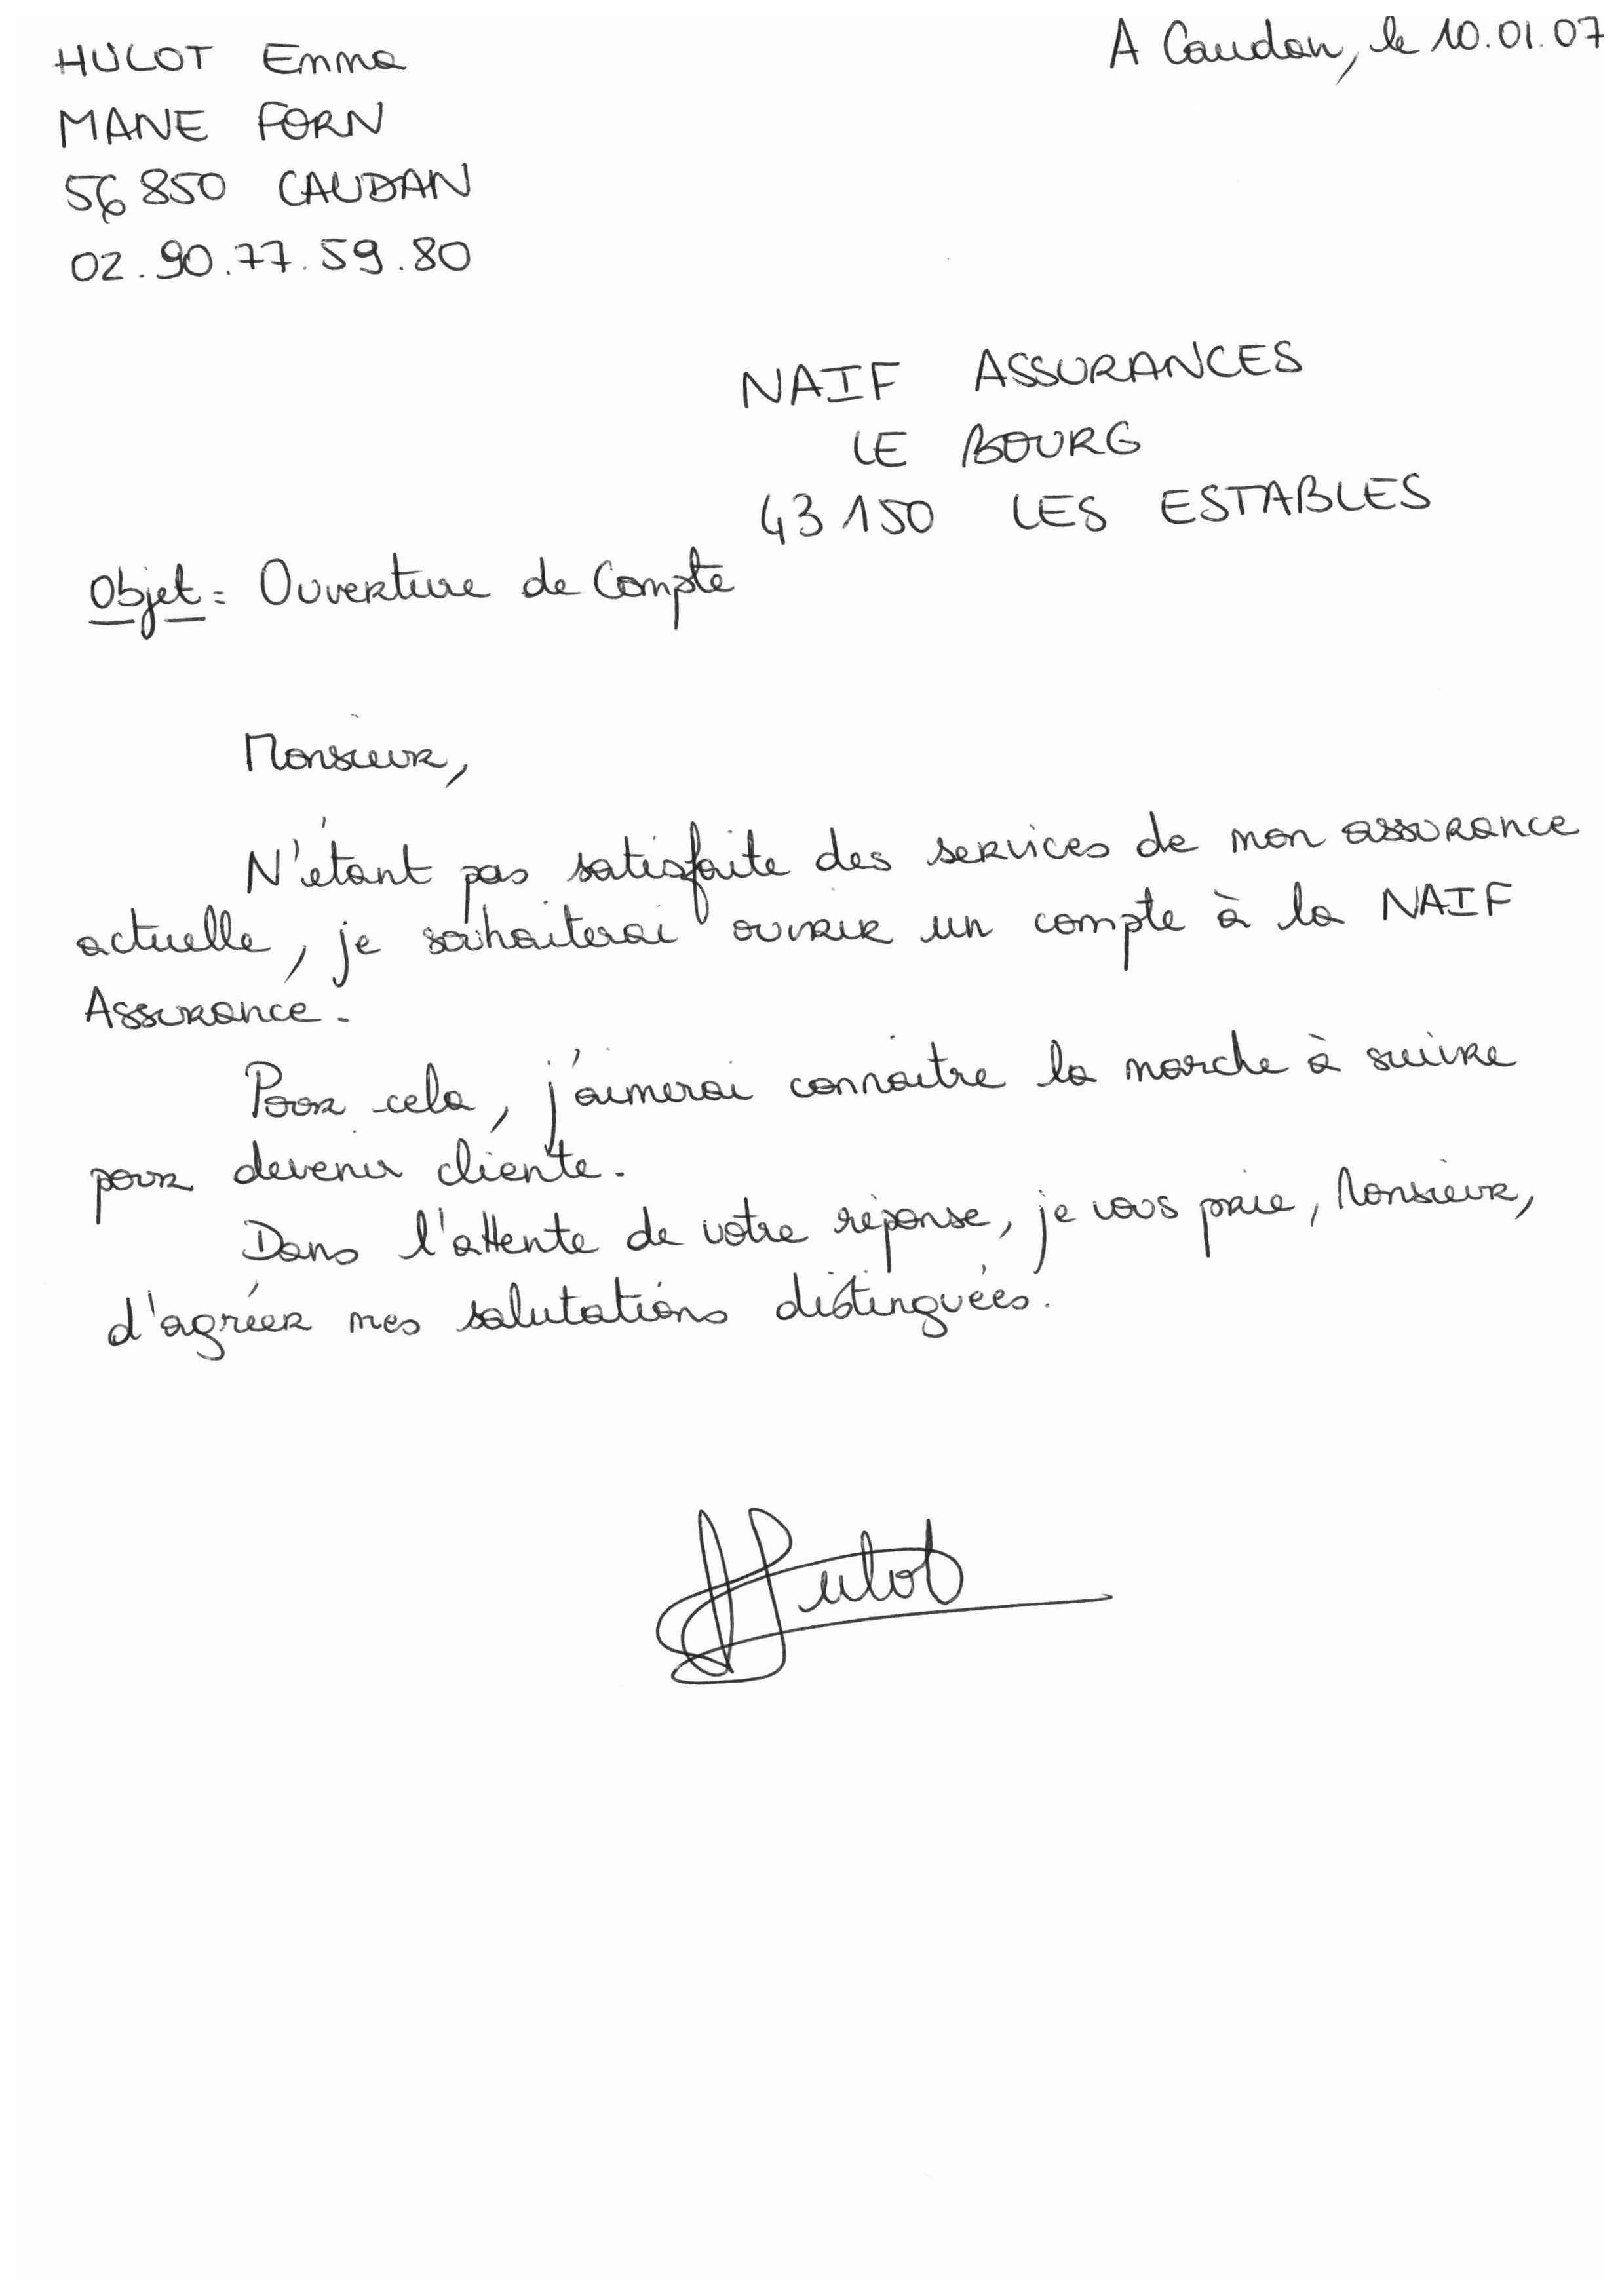 HULOT Emma
A Caudan, le 10.01.07
MANE FORN
56 850 CAUDAN
02.90.77.59.80
NAIF ASSURANCES
LE BOURG
43 150 LES ESTABLES
Objet : Ouverture de Compte
Monsieur,
N'étant pas satisfaite des services de mon assurance
actuelle, je souhaiterai ouvrir un compte à la NAIF
Assurance.
Pour cela, j'aimerai connaitre la marche à suivre
pour devenir cliente.
Dans l'attente de votre réponse, je vous prie, Monsieur,
d'agréer mes salutations distinguées.
Hulot